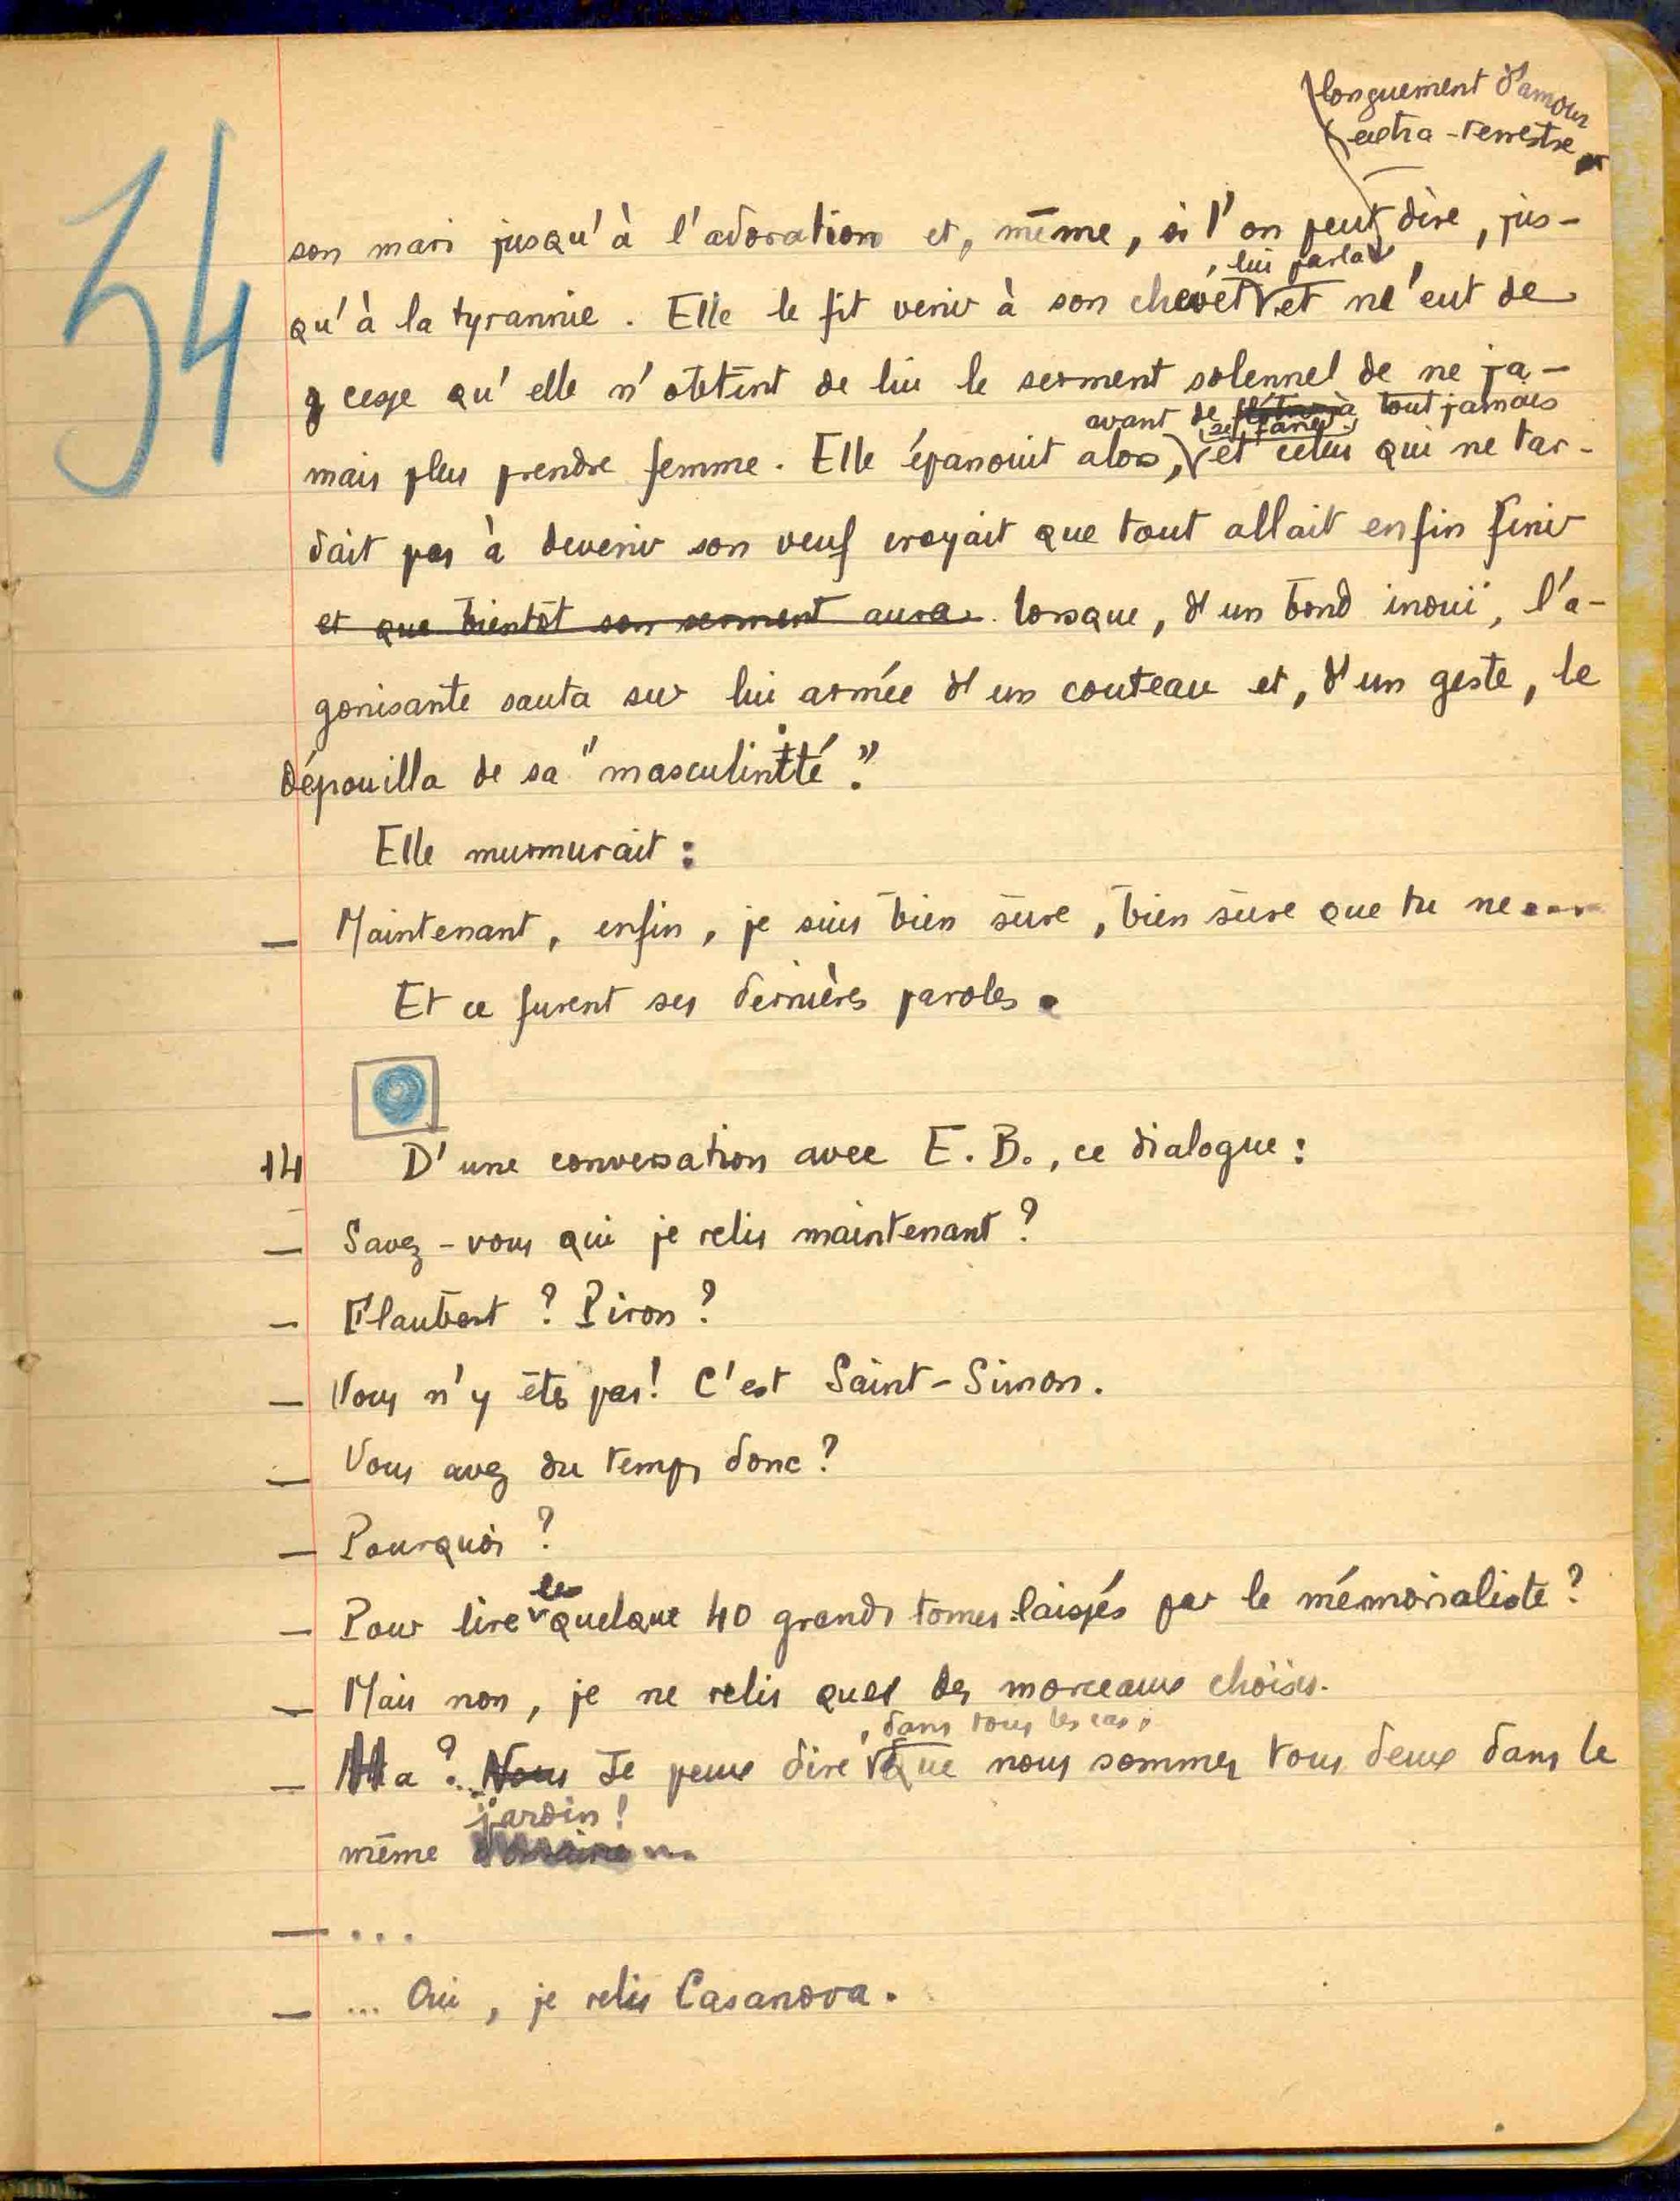 34
longuement d'amour
extra-terrestre
son mari jusqu'à l'adoration et, même, si l'on peut dire, jus-
, lui parla
qu'à la tyrannie. Elle le fit venir à son chevet et n'eut de
cesse qu'elle n'obtint de lui le serment solennel de ne ja-
avant de se faner à tout jamais
mais plus prendre femme. Elle épanouit alors, et celui qui ne tar-
dait pas à devenir son veuf croyait que tout allait enfin finir
et que bientôt son serment aura lorsque, d'un bond inouï, l'a-
gonisante sauta sur lui armée d'un couteau et, d'un geste, le
dépouilla de sa "masculinité".
Elle murmurait :
— Maintenant, enfin, je suis bien sûre, bien sûre que tu ne....
Et ce furent ses dernières paroles.
14 D'une conversation avec E. B., ce dialogue :
— Savez-vous qui je relis maintenant ?
— Flaubert ? Piron ?
— Vous n'y êtes pas ! C'est Saint-Simon.
— Vous avez du temps donc ?
— Pourquoi ?
les
— Pour lire quelque 40 grands tomes laissés par le mémorialiste ?
— Mais non, je ne relis que des morceaux choisis.
, dans tous les cas,
— Ha ?.. Nous Je peux dire que nous sommes tous deux dans le
jardin !
même domaine...
— ...
— ... Oui, je relis Casanova.